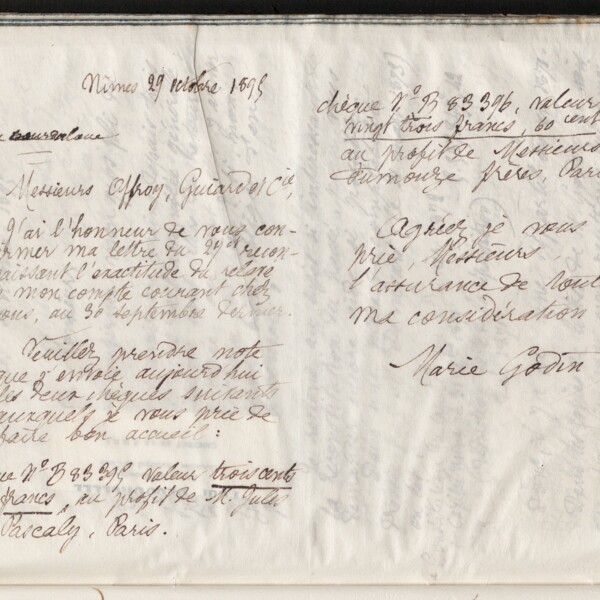 Nîmes 29 octobre 1895
Messieurs Offroy, Guiard et Cie,
J'ai l'honneur de vous con-
firmer ma lettre du reçon-
naissant l'exactitude du relevé
mon compte courant chez
vous, au 30 septembre dernier.
Veuillez prendre note
que j'envoie aujourd'hui
les deux chèques suivants
auxquels je vous prie de
faire bon accueil :
que No B 83395 valeur trois cents
francs, au profit de M. Jules
Pascaly, Paris.
chèque No B 83396, valeur
vingt trois francs, 60 cent
au profit de Messieurs
Dumouze frères, Paris
Agréez, je vous
prie, Messieurs,
l'assurance de toute
ma considération
Marie Godin